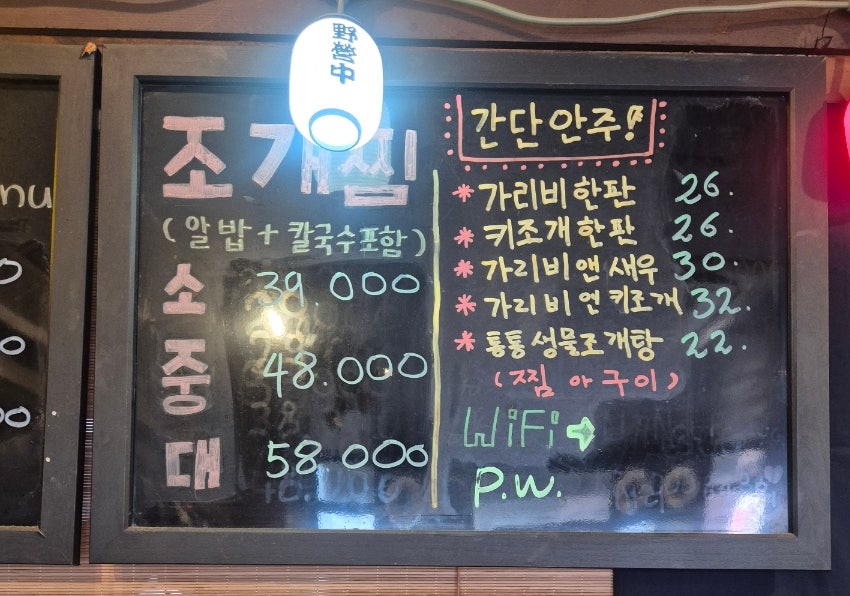 野營中
조개찜
(알밥+칼국수포함)
소 39.000
중 48.000
대 58.000
간단안주!
* 가리비한판 26.
* 키조개한판 26.
* 가리비앤새우 30.
* 가리비앤키조개 32.
* 통통성물조개탕 22.
(찜 아 구이)
WiFi →
P.W.
nu